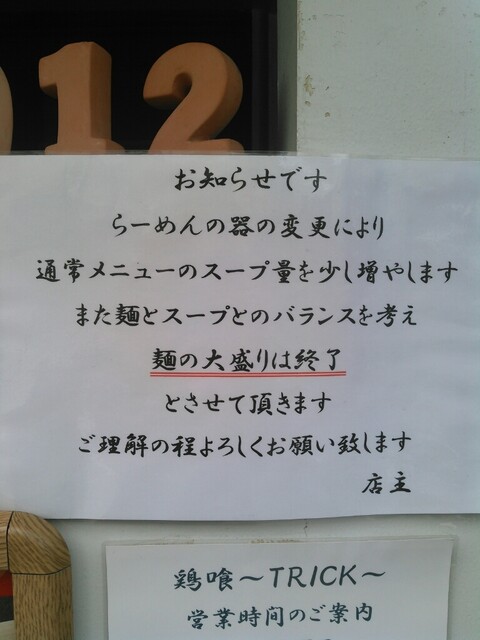 012
お知らせです
らーめんの器の変更により
通常メニューのスープ量を少し増やします
また麺とスープとのバランスを考え
麺の大盛りは終了
とさせて頂きます
ご理解の程よろしくお願い致します
店主
鶏喰～TRICK～
営業時間のご案内